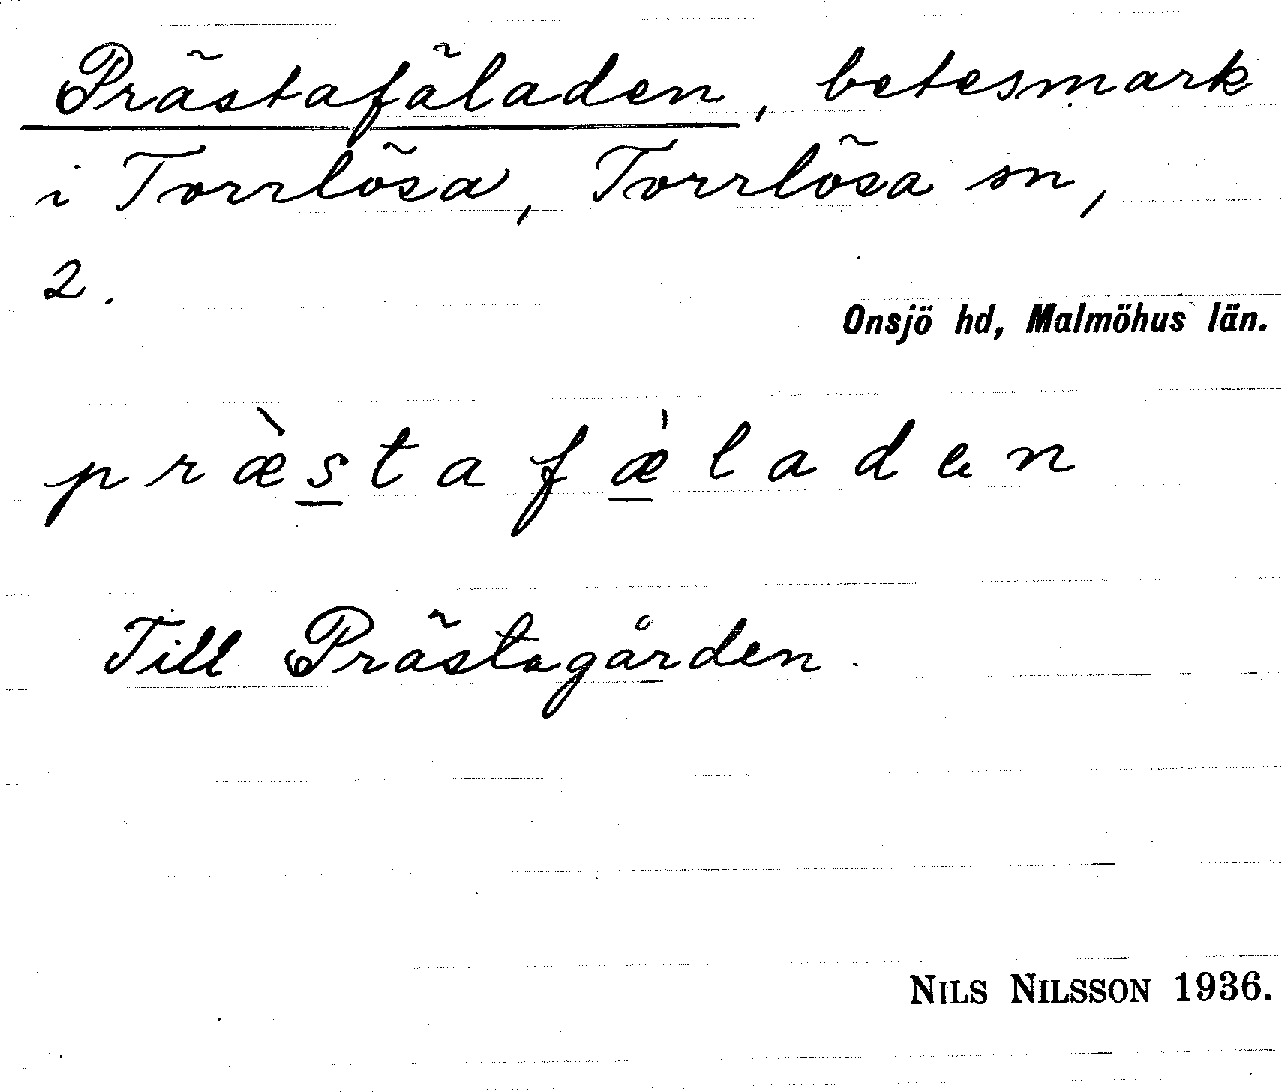 Prästafäladen, betesmark
i Torrlösa, Torrlösa sn,
2.
Onsjö hd, Malmöhus län.
præ̀stafæ̍laden
Till Prästagården.
NILS NILSSON 1936.